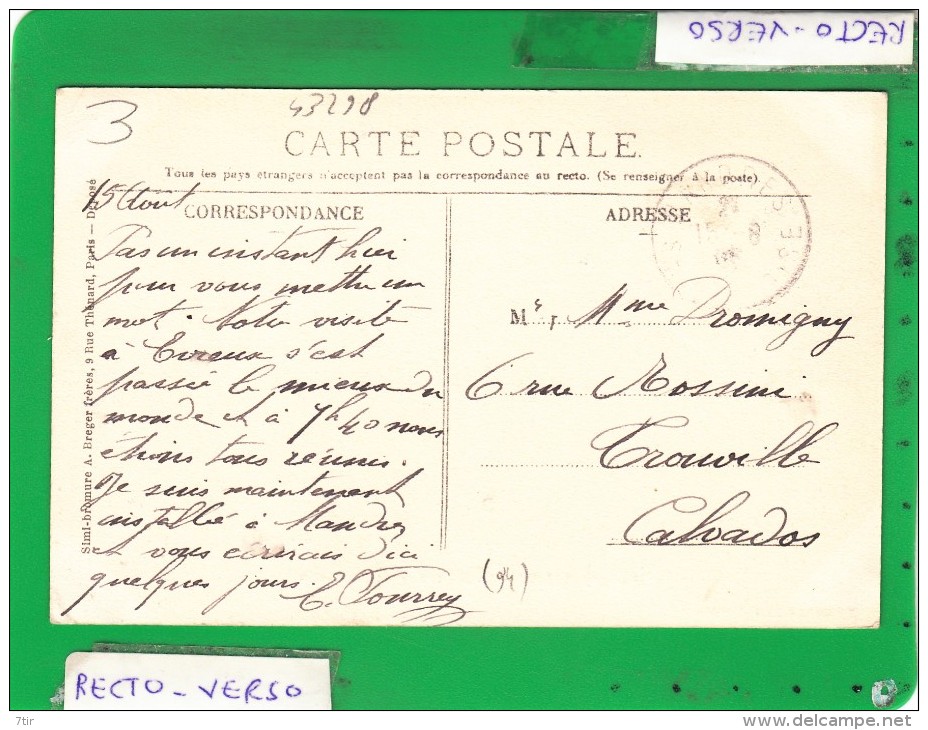 RECTO - VERSO
3
43298
CARTE POSTALE.
Tous les pays étrangers n'acceptent pas la correspondance au recto. (Se renseigner à la poste).
15 Aout
CORRESPONDANCE
Pas un instant hier
pour vous mettre un
mot. Notre visite
à Evreux s'est
passée le mieux du
monde et à 7h40 nous
étions tous réunis.
Je suis maintenant
installée à Mandres
et vous écrirais d'ici
quelques jours. E. Tourrey
ADRESSE
M Mme Dromigny
6 rue Rossini
Trouville
Calvados
(94)
Simi-bromure A. Breger frères, 9 Rue Thénard, Paris — Déposé
RECTO - VERSO
7tir
www.delcampe.net